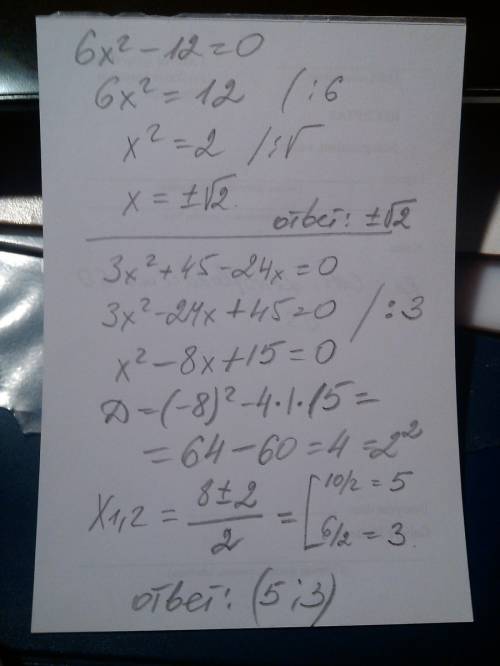 6x² - 12 = 0
6x² = 12 / : 6
x² = 2 / : √
x = ±√2.
ответ: ±√2
3x² + 45 - 24x = 0
3x² - 24x + 45 = 0 / : 3
x² - 8x + 15 = 0
Д = (-8)² - 4·1·15 =
= 64 - 60 = 4 = 2²
X1,2 = (8 ± 2)/2 = [ 10/2 = 5
6/2 = 3.
ответ: (5 ; 3)